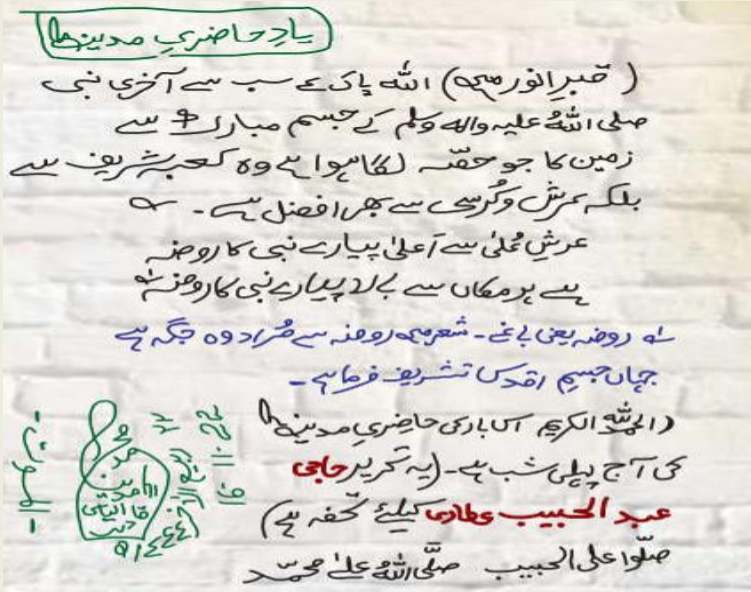 یادِ حاضریِ مدینہ
(قبرِ انور میں) اللہ پاک کے سب سے آخری نبی
صلی اللہُ علیہ والہ وسلم کے جسم مبارک سے
زمین کا جو حصّہ لگا ہوا ہے وہ کعبہ شریف سے
بلکہ عرش و کُرسی سے بھی افضل ہے۔
عرشِ عُلیٰ سے اَعلیٰ پیارے نبی کا روضہ
ہے ہر مکاں سے بالا پیارے نبی کا روضہ
روضہ یعنی باغ۔ شعر میں روضہ سے مُراد وہ جگہ ہے
جہاں جسمِ اقدس تشریف فرما ہے۔
(الحمدللہ الکریم اس بار کی حاضریِ مدینہ
کی آج پہلی شب ہے۔ (یہ تحریر حاجی
عبد الحبیب عطاری کیلئے تحفہ ہے)
صلّوا علی الحبیب صلَّی اللہُ علیٰ محمّد
محمد
ربیع الآخر